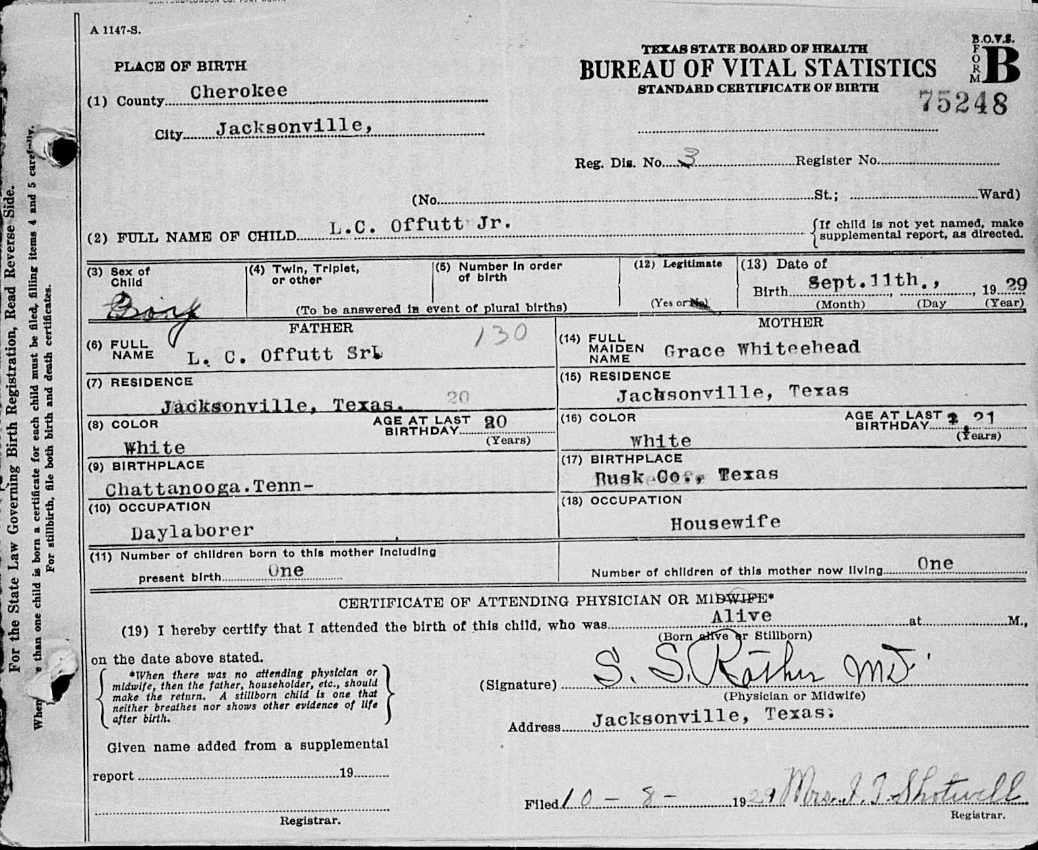 A 1147-S.
TEXAS STATE BOARD OF HEALTH
BUREAU OF VITAL STATISTICS
STANDARD CERTIFICATE OF BIRTH
B.O.V.S.
FORM
B
75248
PLACE OF BIRTH
(1) County Cherokee
City Jacksonville,
Reg. Dis. No. 3 Register No.
(No. St.; Ward)
(2) FULL NAME OF CHILD L.C. Offutt Jr.
{If child is not yet named, make
supplemental report, as directed.
(3) Sex of
Child
Boy
(4) Twin, Triplet,
or other
(5) Number in order
of birth
(To be answered in event of plural births)
(12) Legitimate
(Yes or No)
(13) Date of
Birth Sept. 11th., , 1929
(Month) (Day (Year)
FATHER
130
(6) FULL
NAME L. C. Offutt Sr
(7) RESIDENCE
Jacksonville, Texas.
20
(8) COLOR
White
AGE AT LAST
BIRTHDAY 20
(Years)
(9) BIRTHPLACE
Chattanooga.Tenn-
(10) OCCUPATION
Daylaborer
MOTHER
(14) FULL
MAIDEN
NAME Grace Whiteehead
(15) RESIDENCE
Jachsonville, Texas
(16) COLOR
White
AGE AT LAST
BIRTHDAY 21
(Years)
(17) BIRTHPLACE
Rusk Co., Texas
(18) OCCUPATION
Housewife
(11) Number of children born to this mother including
present birth One
Number of children of this mother now living One
CERTIFICATE OF ATTENDING PHYSICIAN OR MIDWIFE*
(19) I hereby certify that I attended the birth of this child, who was Alive at M.,
(Born alive or Stillborn)
on the date above stated.
{*When there was no attending physician or
midwife, then the father, householder, etc., should
make the return. A stillborn child is one that
neither breathes nor shows other evidence of life
after birth.}
(Signature) S. S. Rather MD
(Physician or Midwife)
Address Jacksonville, Texas.
Given name added from a supplemental
report 19
Registrar.
Filed 10-8- 1929 Mrs. J. T. Shotwell
Registrar.
For the State Law Governing Birth Registration, Read Reverse Side.
than one child is born a certificate for each child must be filed, filling items 4 and 5 carefully.
For stillbirth, file both birth and death certificates.